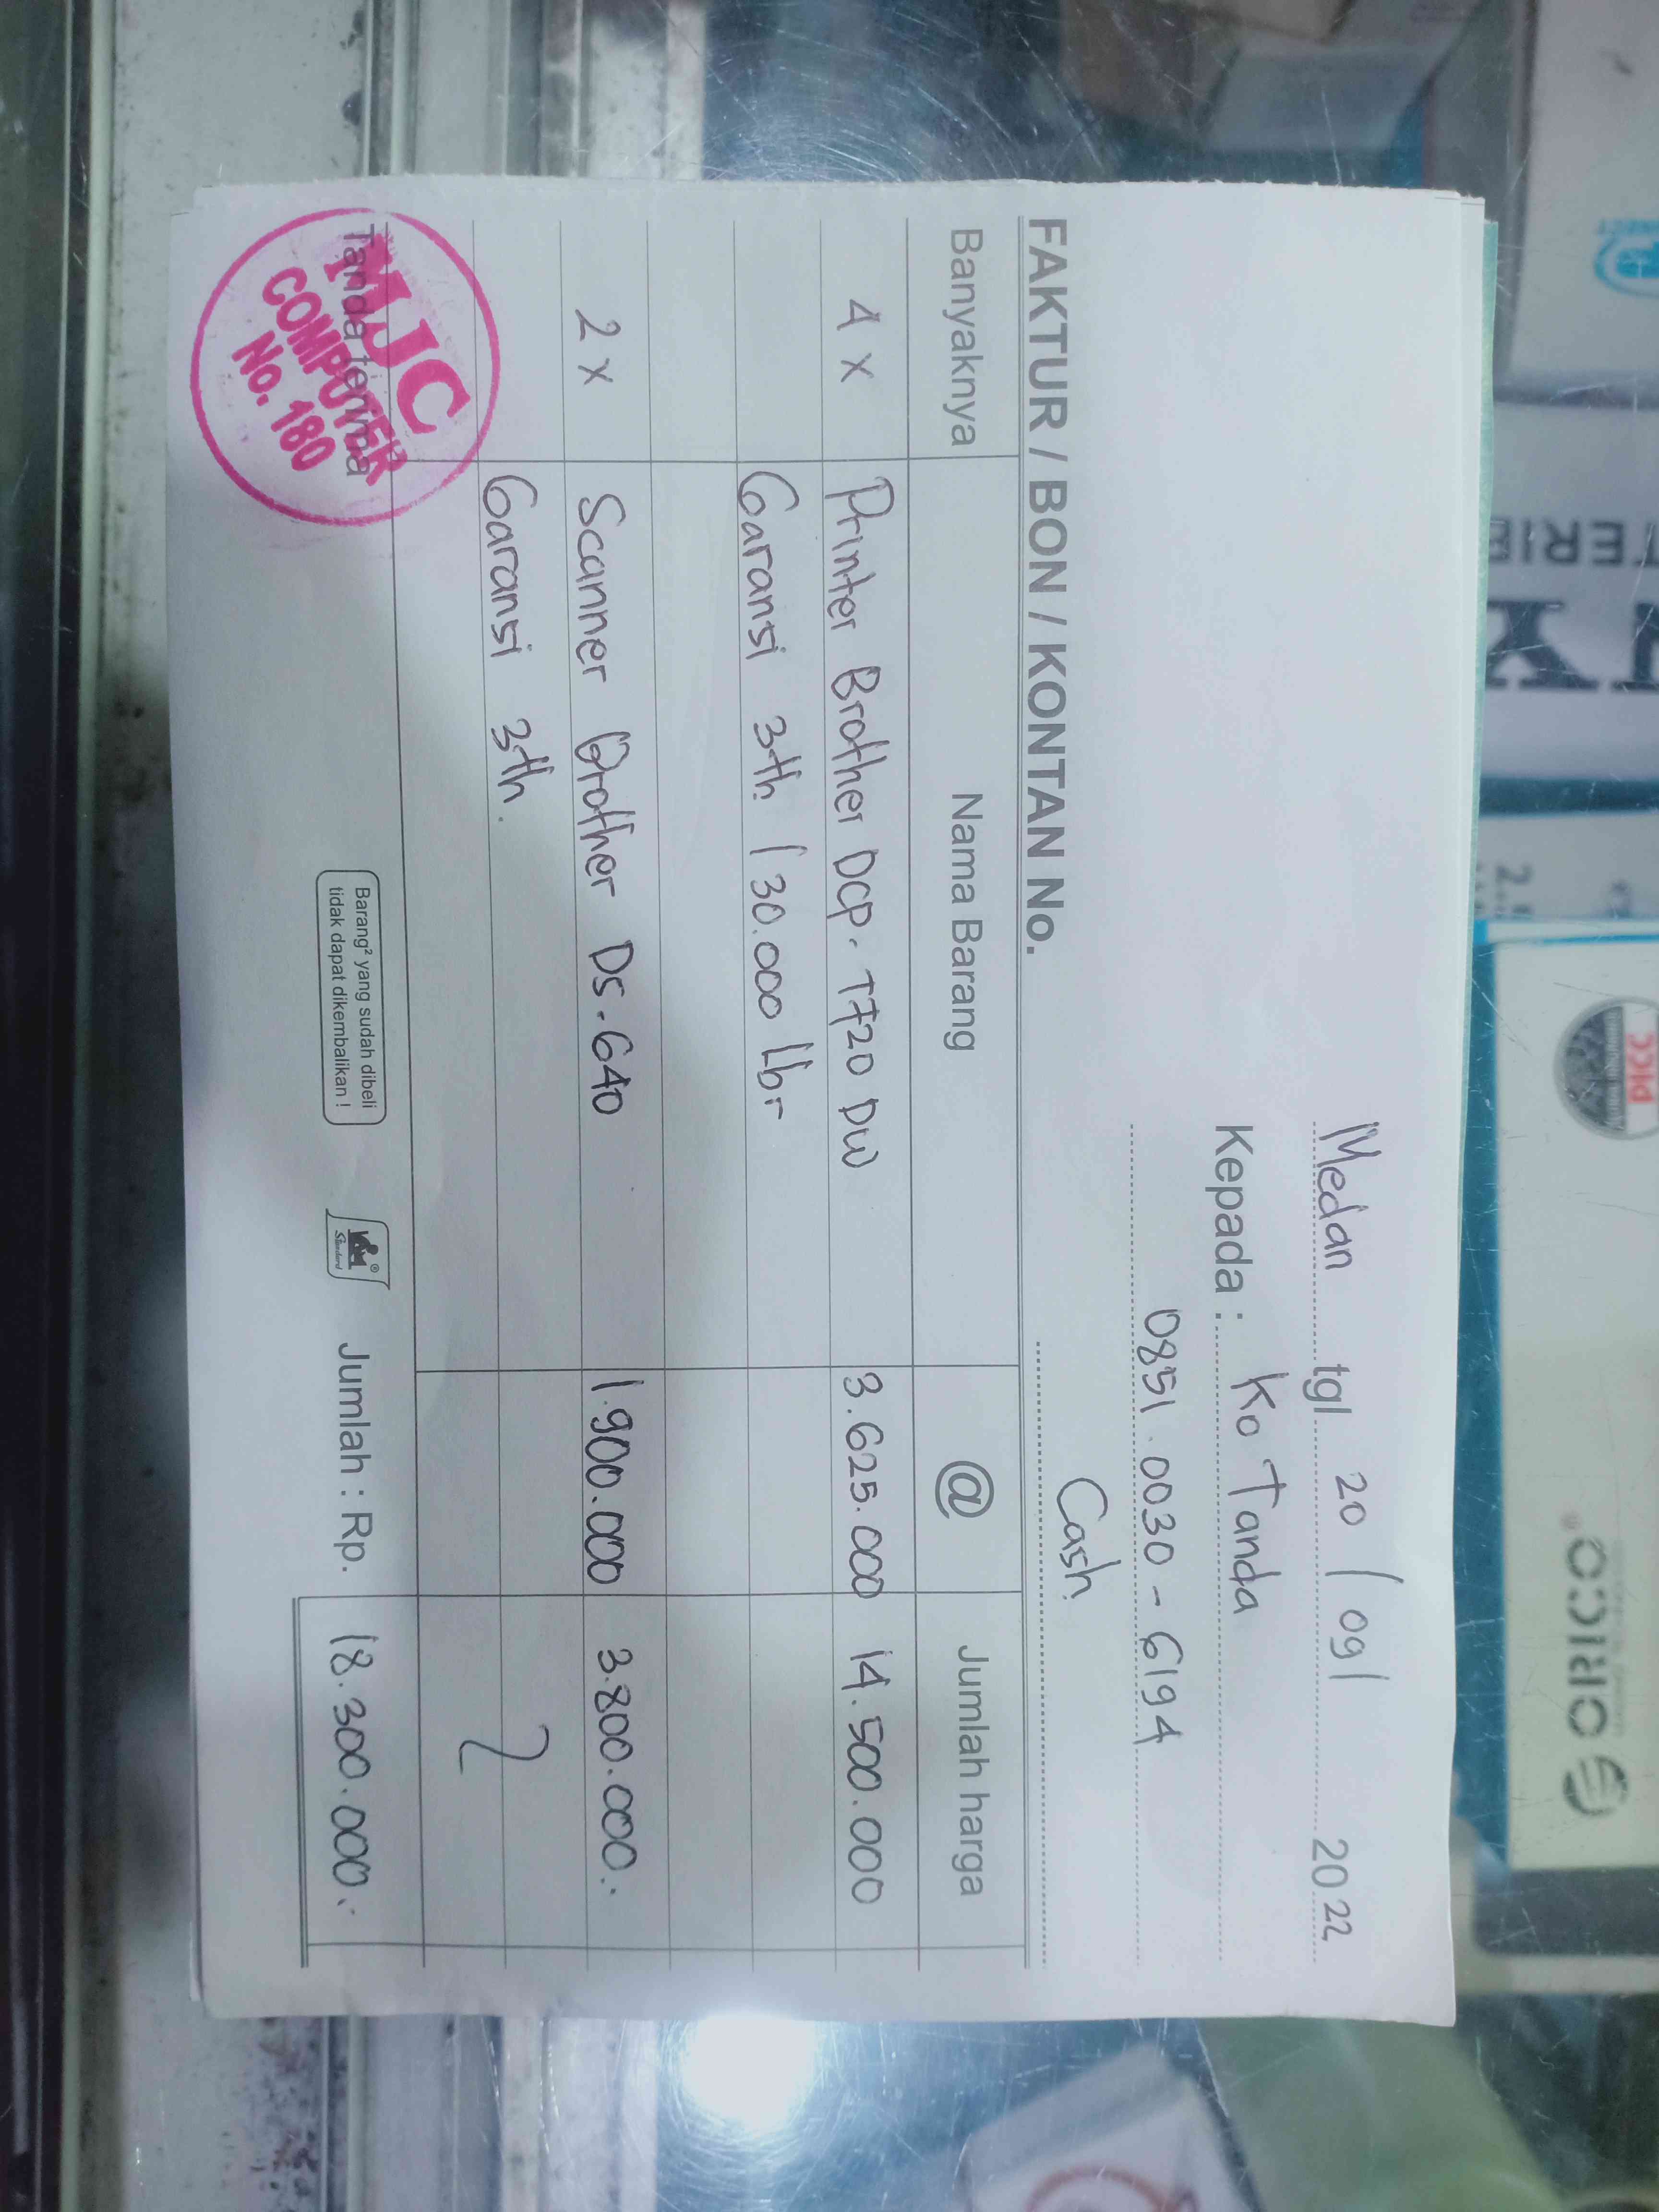 Medan tgl 20/09/ 2022
Kepada : Ko Tanda
0851.0030-6194
Cash
FAKTUR / BON / KONTAN No.
Banyaknya Nama Barang @ Jumlah harga
4 x Printer Brother DCP. T720 DW 3.625.000 14.500.000
Garansi 3th / 30.000 Lbr
2 x Scanner Brother DS-640 1.900.000 3.800.000.-
Garansi 3th.
Tanda terima
MJC
COMPUTER
No. 180
Barang² yang sudah dibeli
tidak dapat dikembalikan !
Standard
Jumlah : Rp. 18.300.000.-
ORICO